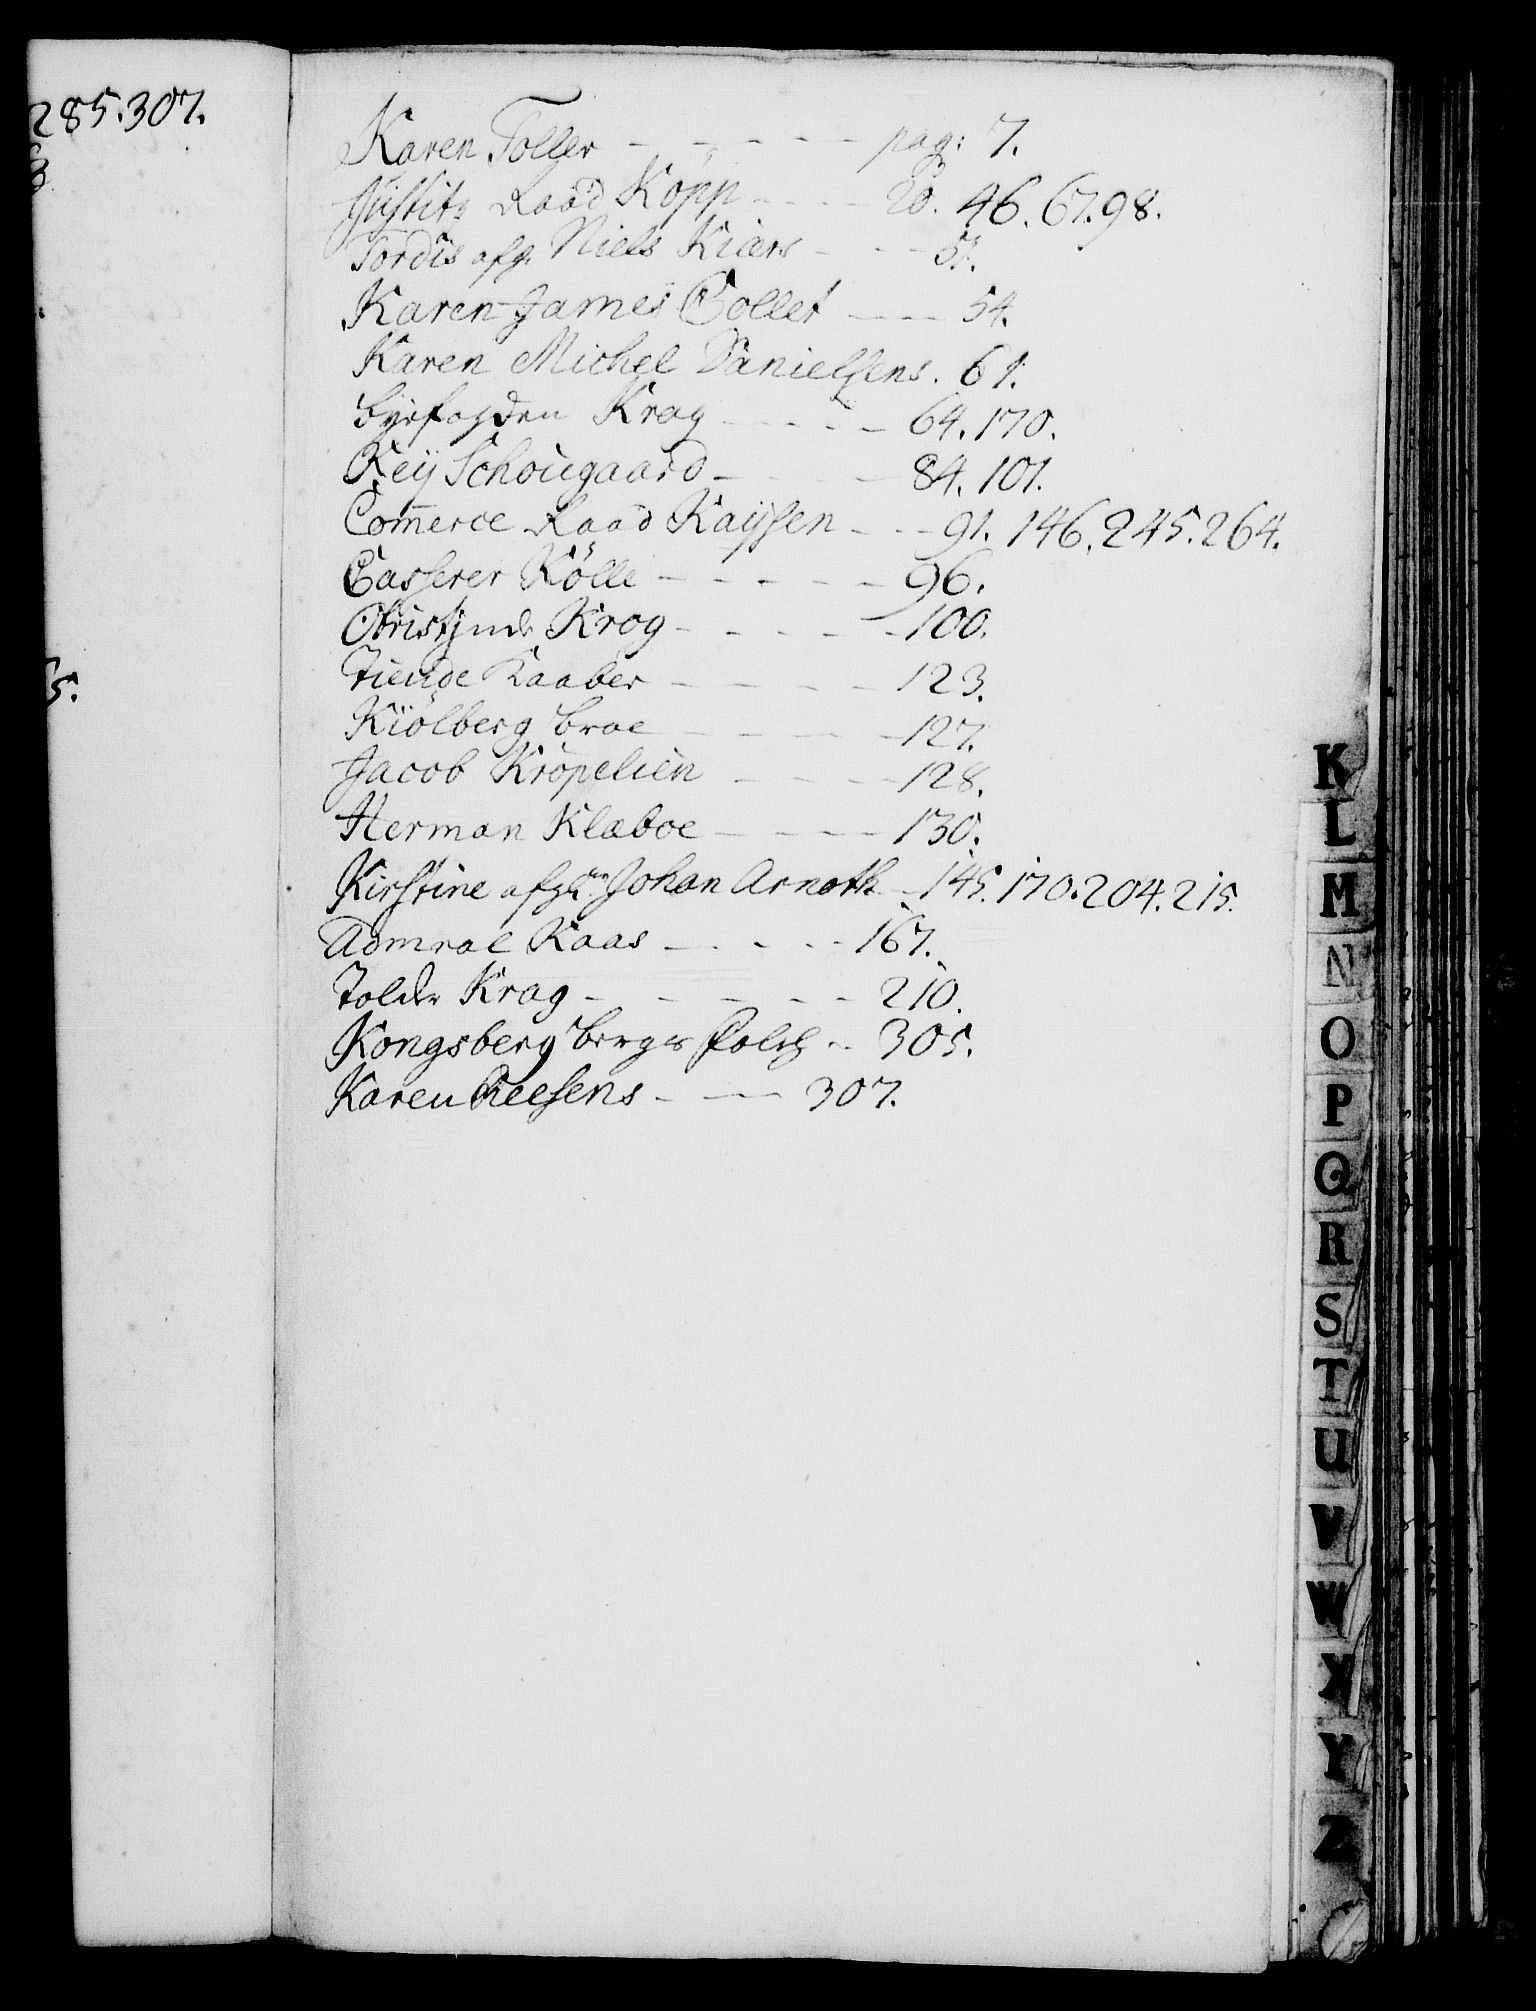 285.307.
5.
Karen Toller - - - - - pag: 7.
Justitz Raad Kopp - - - - 20. 46. 67. 98.
Tordis afg: Niels Kiærs - - - 51.
Karen James Collet - - - 54.
Karen Michel Danielsens. 61.
Byefogden Krag - - - - 64. 170.
Key Schougaard - - - 84. 101.
Com̄erce Raad Kaysen - - - 91. 146. 245. 264.
Casserer Kölle - - - - - 96.
Obristl: Krog - - - - - 100.
Tiende Kaaber - - - - 123.
Kiölberg broe - - - - - 127.
Jacob Kröpelien - - - - 128.
Herman Klæboe - - - - 130.
Kirstine afg: Johan Arnoth - 145. 170. 204. 215.
Admiral Kaas - - - - 167.
Tolder Krag - - - - - - 210.
Kongsberg Bergv: - - 305.
Karen Reesens - - - 307.
K
L
M
N
O
P
Q
R
S
T
U
V
W
X
Y
Z